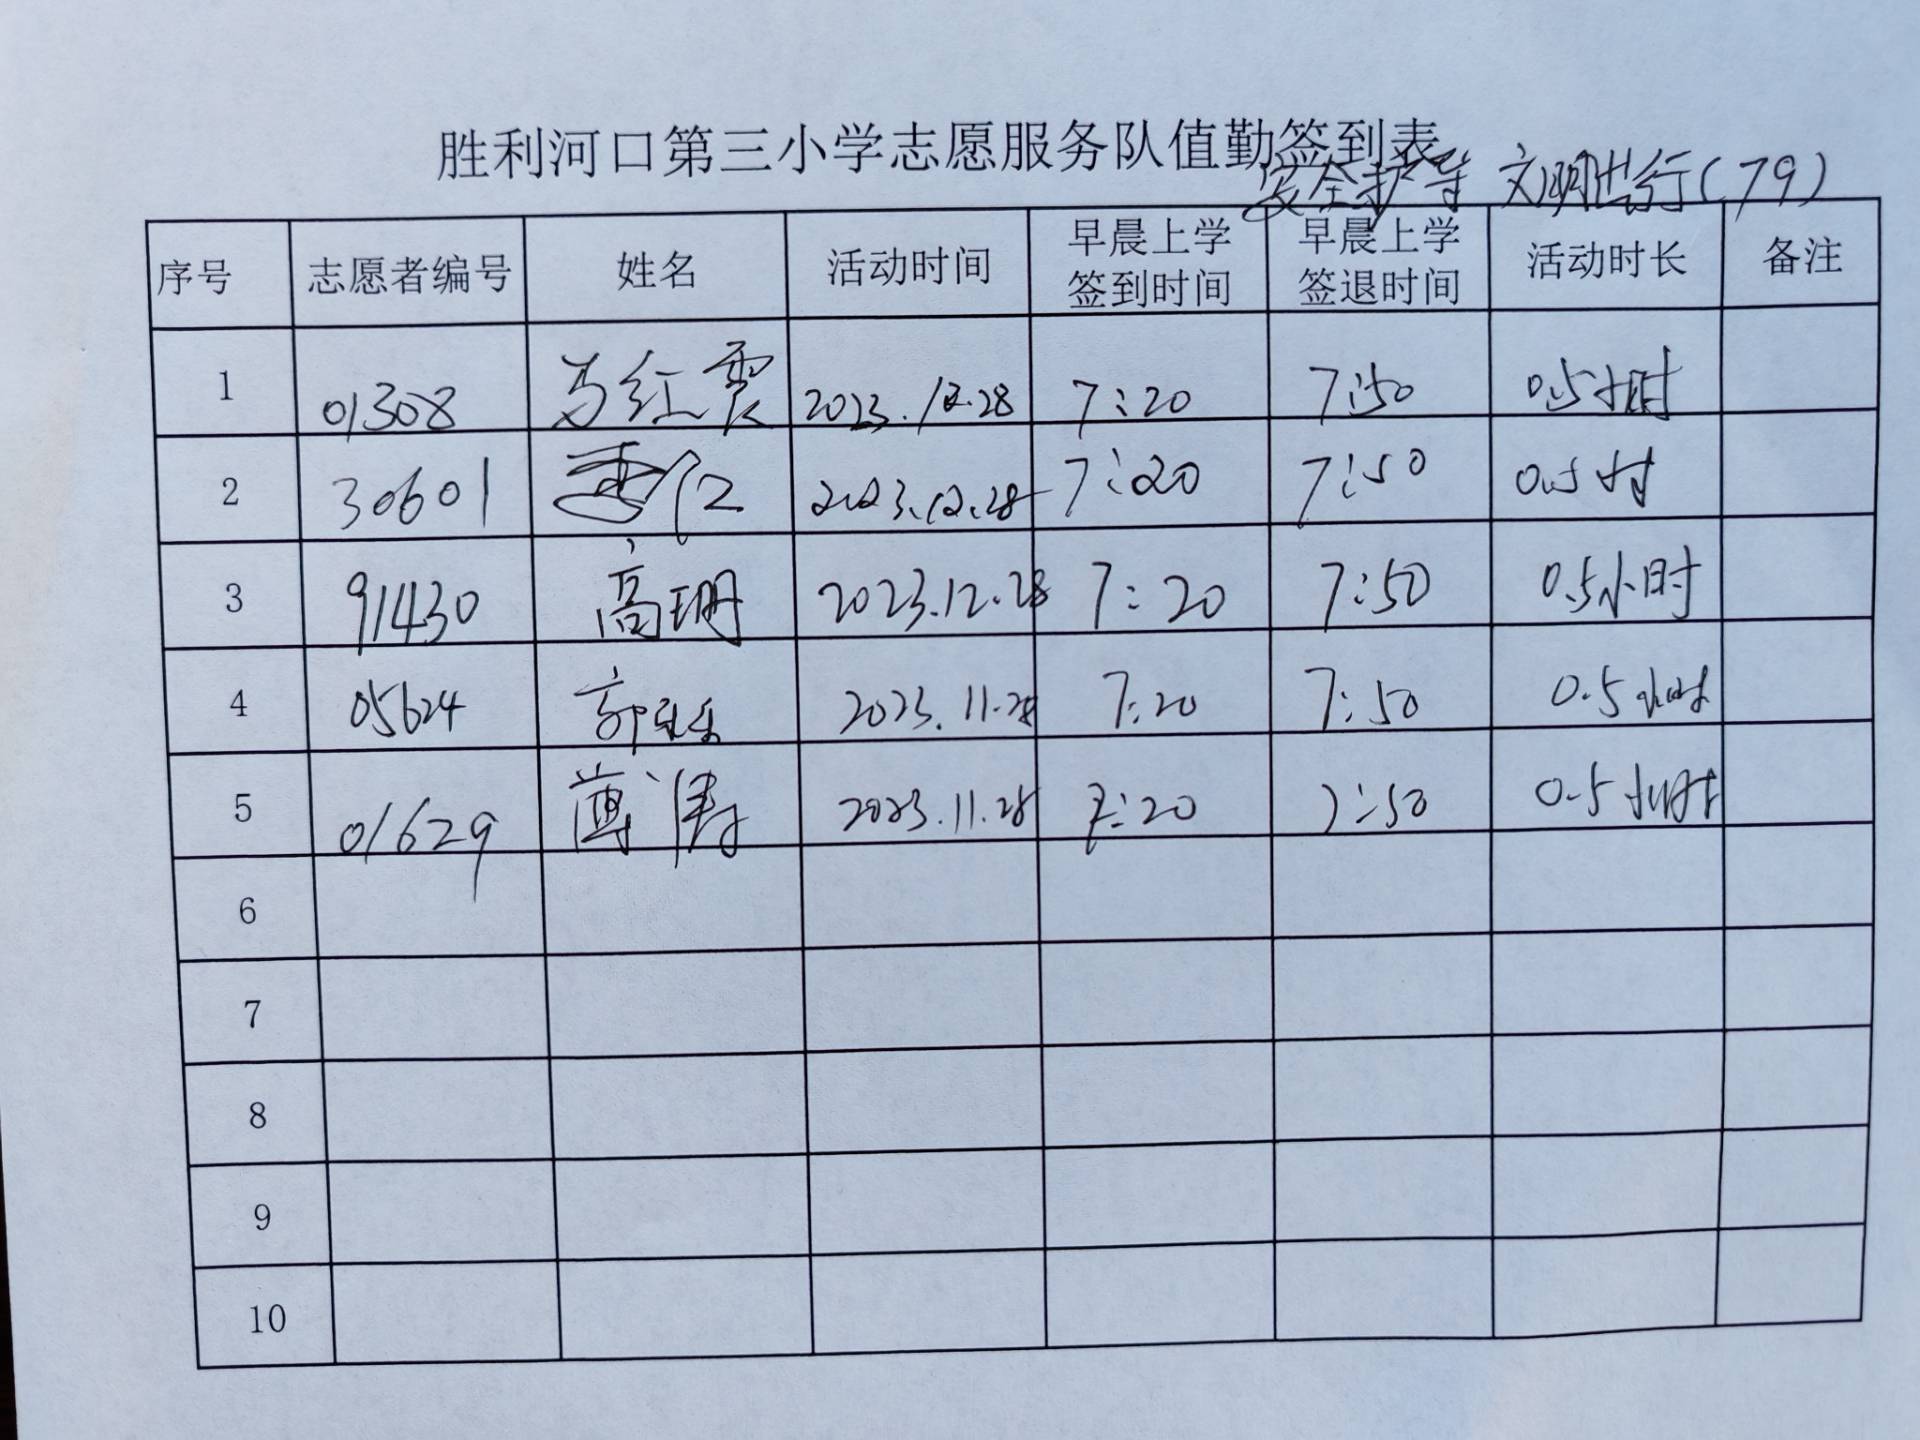 胜利河口第三小学志愿服务队值勤签到表
安全护导 文明出行(79)
序号 志愿者编号 姓名 活动时间 早晨上学签到时间 早晨上学签退时间 活动时长 备注
1 01308 马红霞 2023.12.28 7:20 7:50 0.5小时
2 30601 2023.12.28 7:20 7:50 0.5时
3 91430 高珊 2023.12.28 7:20 7:50 0.5小时
4 05624 2023.11.28 7:20 7:50 0.5小时
5 01629 薄涛 2023.11.28 7:20 7:50 0.5小时
6
7
8
9
10